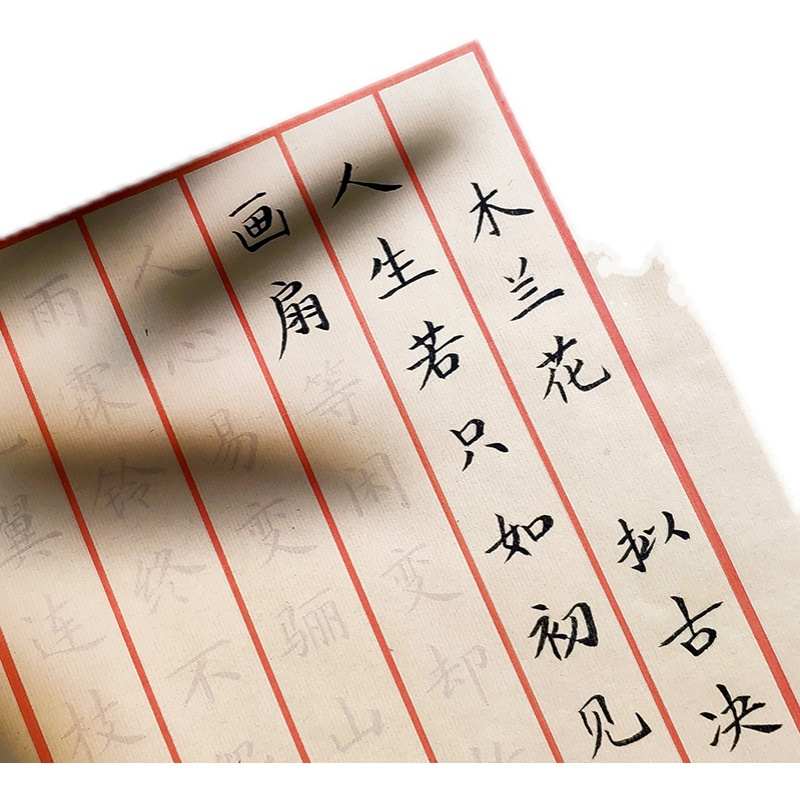 木兰花 拟古决
人生若只如初见
画扇等闲变却
人心易变骊山
雨霖铃终不
翼连枝